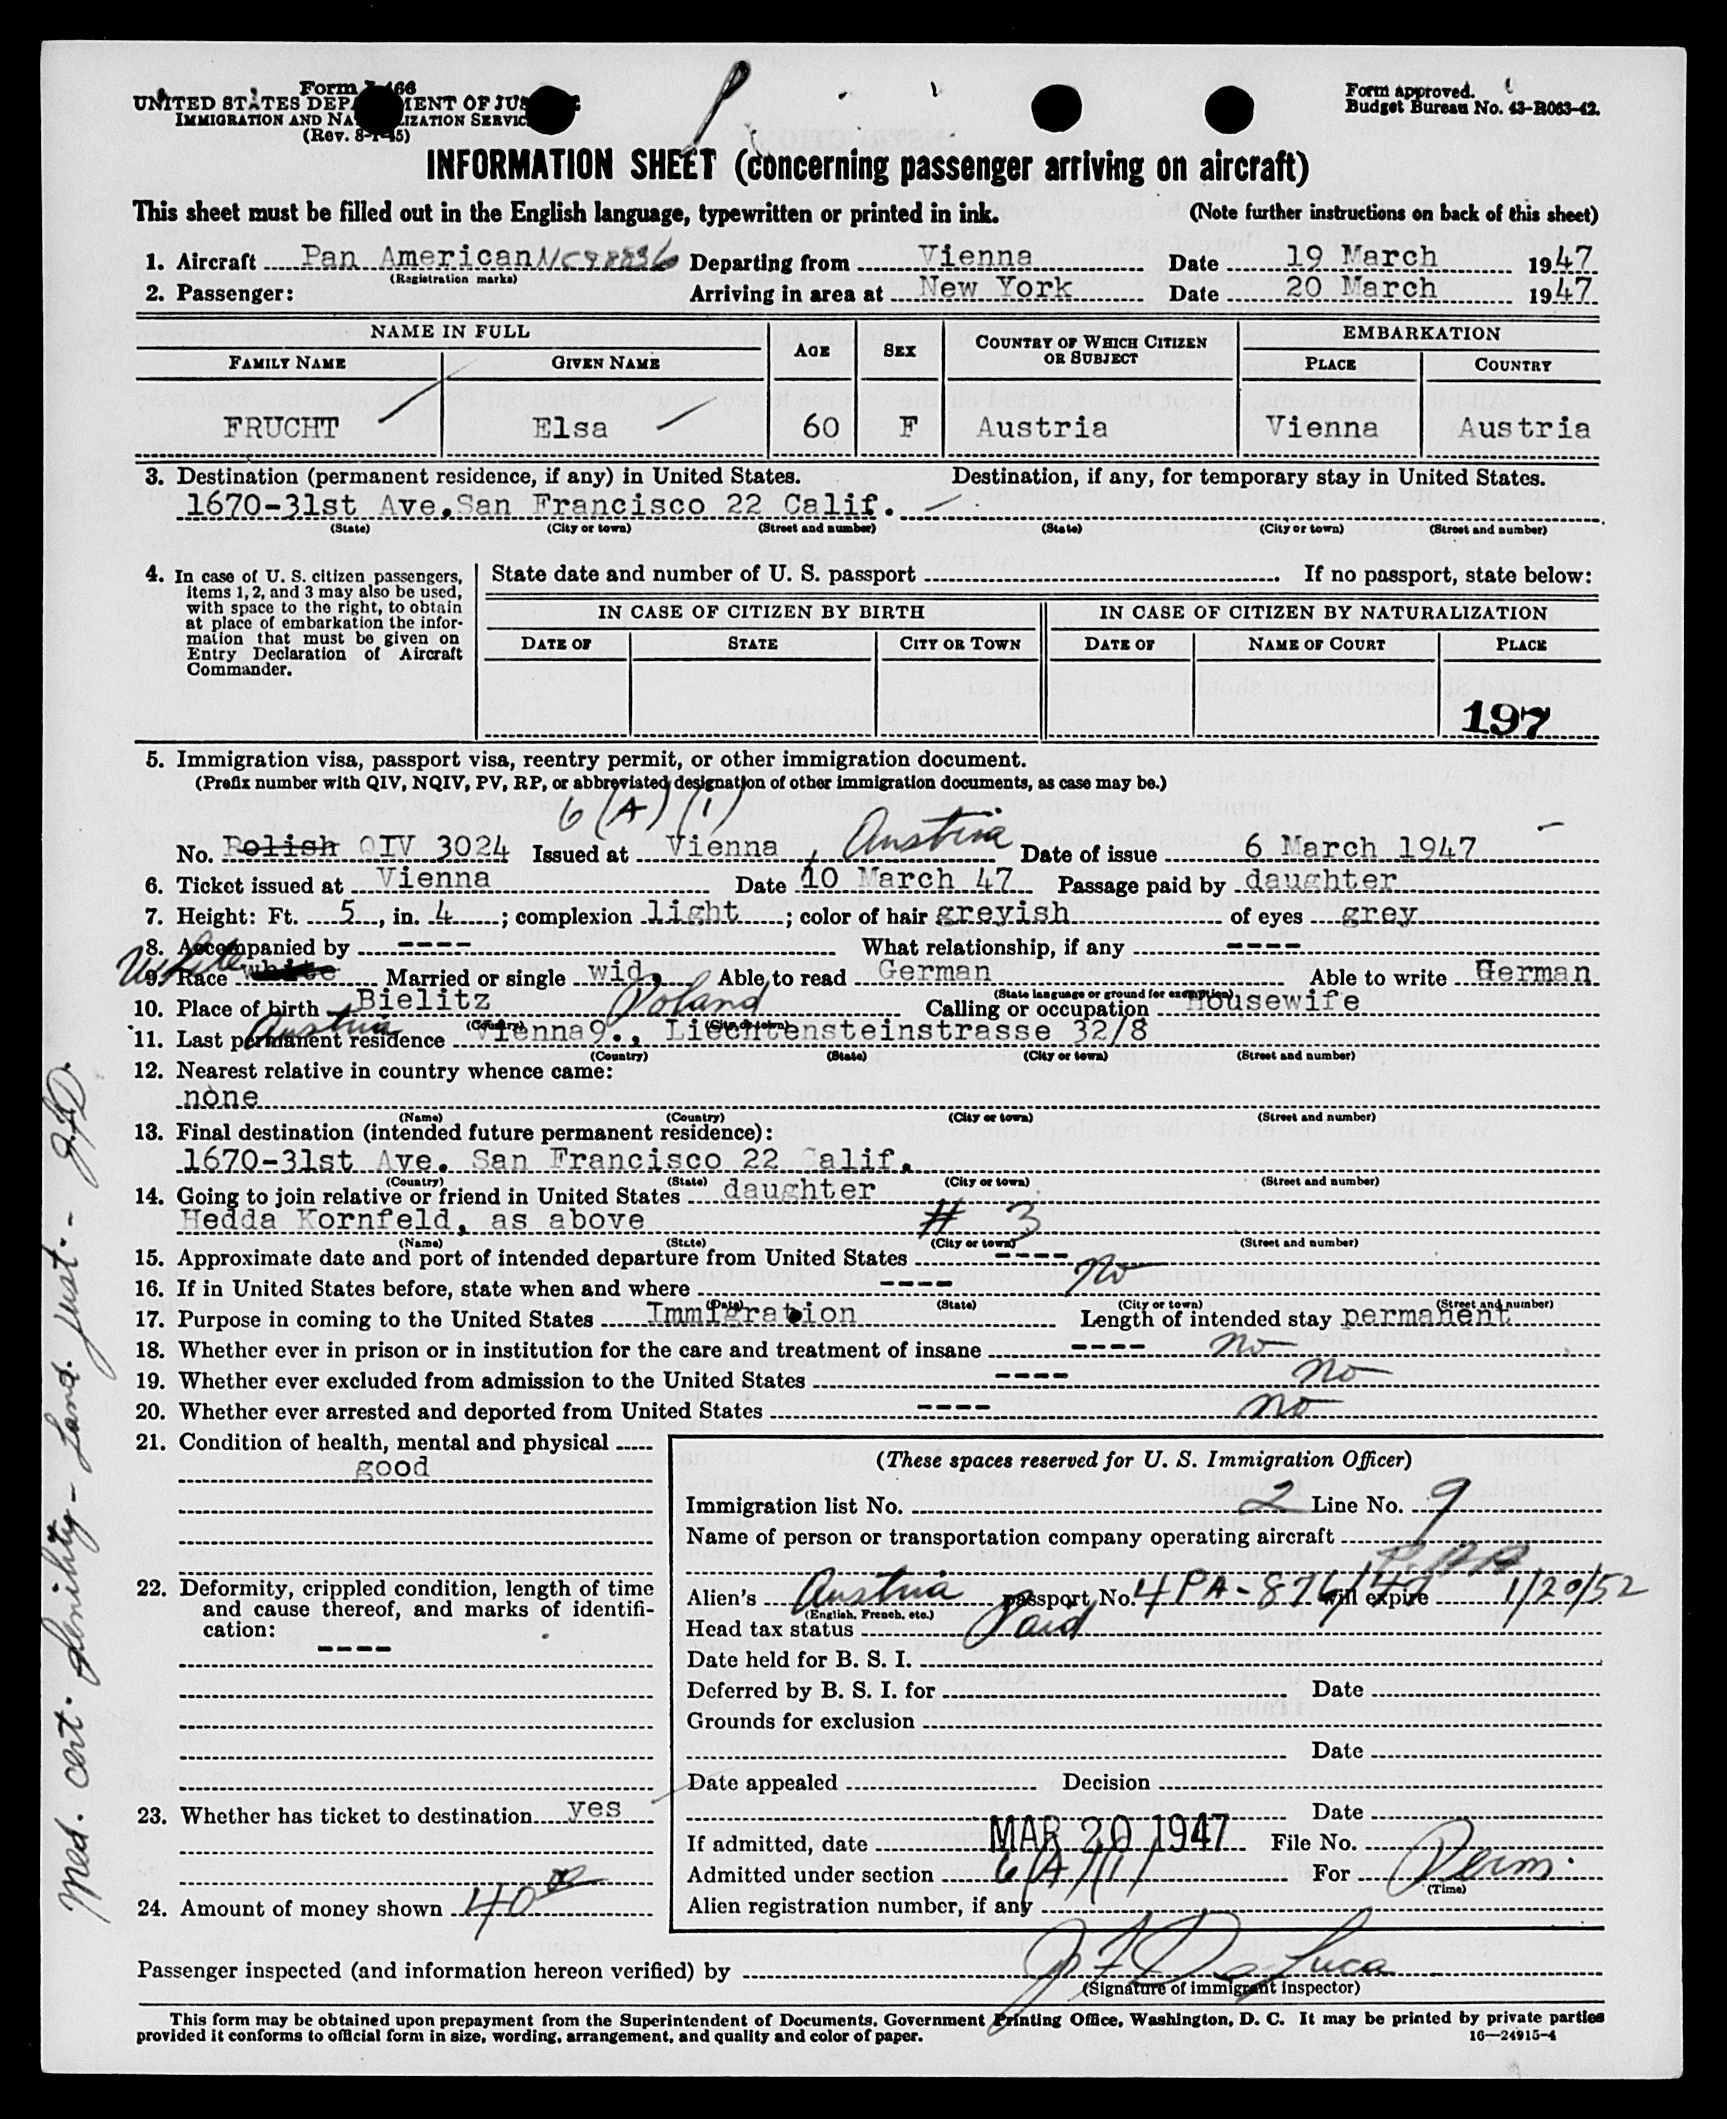 Form I-466
UNITED STATES DEPARTMENT OF JUSTICE
IMMIGRATION AND NATURALIZATION SERVICE
(Rev. 8-1-45)
Form approved.
Budget Bureau No. 43-R063-42.
INFORMATION SHEET (concerning passenger arriving on aircraft)
This sheet must be filled out in the English language, typewritten or printed in ink. (Note further instructions on back of this sheet)
1. Aircraft Pan American NC88836 Departing from Vienna Date 19 March 1947
(Registration marks)
2. Passenger: Arriving in area at New York Date 20 March 1947
NAME IN FULL AGE SEX COUNTRY OF WHICH CITIZEN OR SUBJECT EMBARKATION
FAMILY NAME GIVEN NAME PLACE COUNTRY
FRUCHT Elsa 60 F Austria Vienna Austria
3. Destination (permanent residence, if any) in United States. Destination, if any, for temporary stay in United States.
1670-31st Ave. San Francisco 22 Calif.
(State) (City or town) (Street and number) (State) (City or town) (Street and number)
4. In case of U. S. citizen passengers,
items 1, 2, and 3 may also be used,
with space to the right, to obtain
at place of embarkation the infor-
mation that must be given on
Entry Declaration of Aircraft
Commander.
State date and number of U. S. passport If no passport, state below:
IN CASE OF CITIZEN BY BIRTH IN CASE OF CITIZEN BY NATURALIZATION
DATE OF STATE CITY OR TOWN DATE OF NAME OF COURT PLACE
197
5. Immigration visa, passport visa, reentry permit, or other immigration document.
(Prefix number with QIV, NQIV, PV, RP, or abbreviated designation of other immigration documents, as case may be.)
6 (A) (1)
No. Polish QIV 3024 Issued at Vienna, Austria Date of issue 6 March 1947
6. Ticket issued at Vienna Date 10 March 47 Passage paid by daughter
7. Height: Ft. 5, in. 4; complexion light; color of hair greyish of eyes grey
8. Accompanied by ---- What relationship, if any ----
White
9. Race white Married or single wid. Able to read German Able to write German
(State language or ground for exemption)
10. Place of birth Bielitz Poland Calling or occupation Housewife
(Country) (City or town)
Austria
11. Last permanent residence Vienna 9., Liechtensteinstrasse 32/8
(Country) (State) (City or town) (Street and number)
12. Nearest relative in country whence came:
none
(Name) (Country) (City or town) (Street and number)
13. Final destination (intended future permanent residence):
1670-31st Ave. San Francisco 22 Calif.
(Country) (State) (City or town) (Street and number)
14. Going to join relative or friend in United States daughter
Hedda Kornfeld, as above # 3
(Name) (State) (City or town) (Street and number)
15. Approximate date and port of intended departure from United States ----
16. If in United States before, state when and where ---- no
(Date) (State) (City or town) (Street and number)
17. Purpose in coming to the United States Immigration Length of intended stay permanent
18. Whether ever in prison or in institution for the care and treatment of insane ---- no
19. Whether ever excluded from admission to the United States ---- no
20. Whether ever arrested and deported from United States ---- no
21. Condition of health, mental and physical
good
22. Deformity, crippled condition, length of time
and cause thereof, and marks of identifi-
cation:
----
23. Whether has ticket to destination yes
24. Amount of money shown 40 00
(These spaces reserved for U. S. Immigration Officer)
Immigration list No. 2 Line No. 9
Name of person or transportation company operating aircraft
P.A.A.
Alien's Austria passport No. 4PA-876/47 will expire 1/20/52
(English, French, etc.)
Head tax status Paid
Date held for B. S. I.
Deferred by B. S. I. for Date
Grounds for exclusion
Date
Date appealed Decision
Date
If admitted, date MAR 20 1947 File No.
Admitted under section 6(A)(1) For Perm.
(Time)
Alien registration number, if any
Passenger inspected (and information hereon verified) by J F DeLuca
(Signature of immigrant inspector)
This form may be obtained upon prepayment from the Superintendent of Documents, Government Printing Office, Washington, D. C. It may be printed by private parties
provided it conforms to official form in size, wording, arrangement, and quality and color of paper. 16—24915-4
Med. Cert. Senility - Land. Just. -